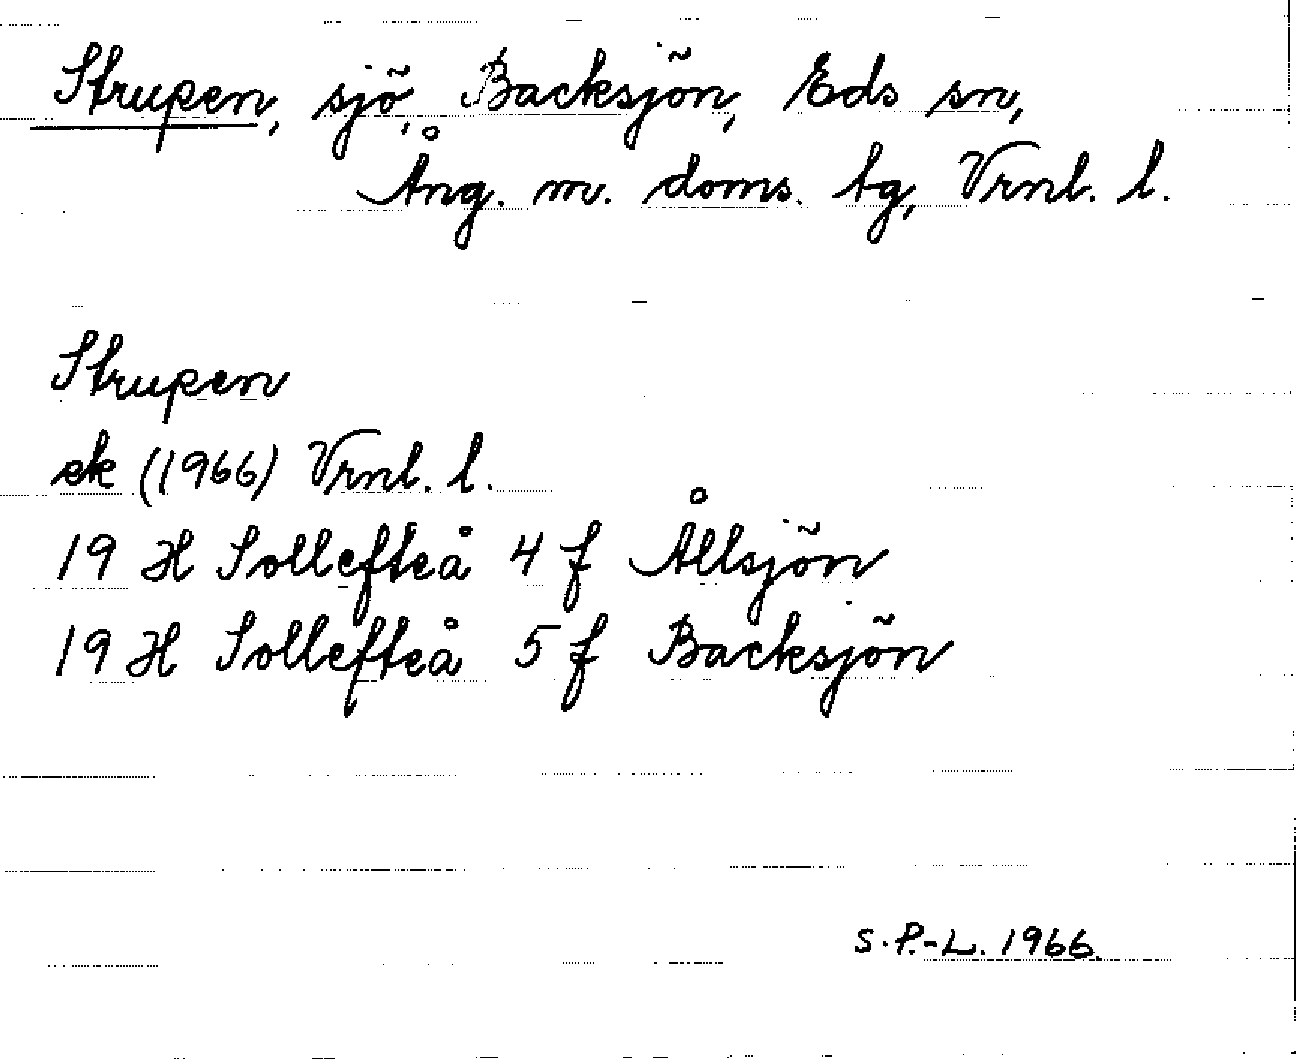 Strupen, sjö, Backsjön, Eds sn,
Ång. m. doms. tg, Vrnl. l.
Strupen
ek (1966) Vrnl. l.
19 H Sollefteå 4 f Ållsjön
19 H Sollefteå 5 f Backsjön
S.P.-L. 1966.